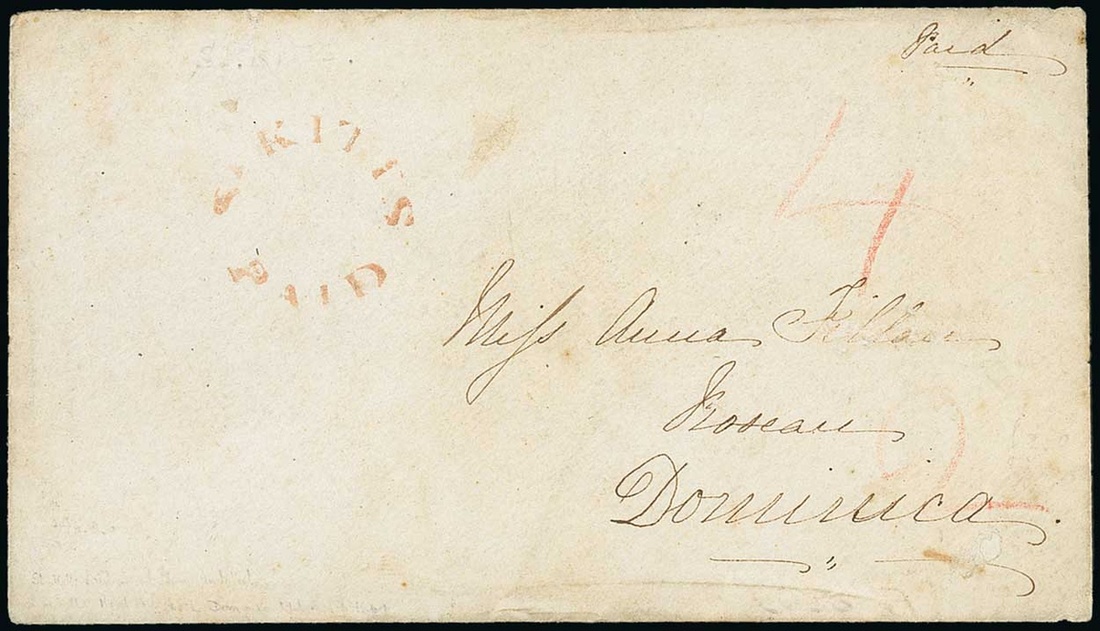 Paid
St KITTS
PAID
4
Miss Anna
Roseau
2
Dominica